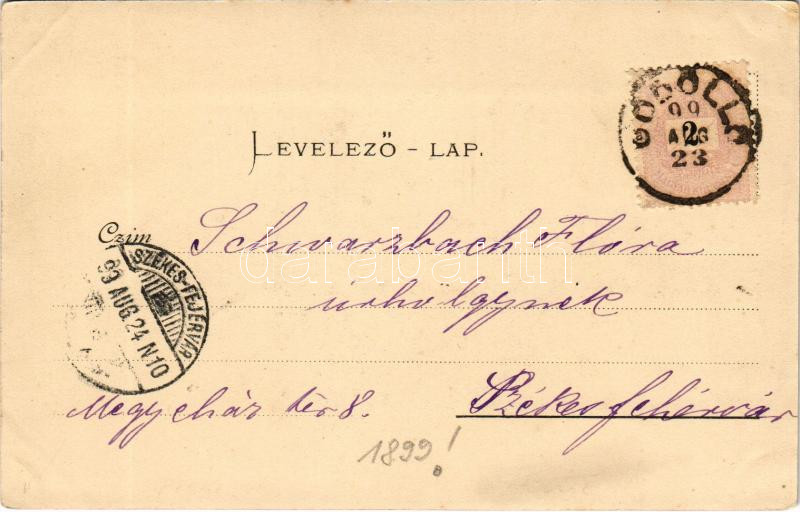 LEVELEZŐ - LAP.
GÖDÖLLŐ
99
AUG
23
2
Czim
Schwarzbach Flóra
úrhölgynek
SZÉKES-FEJÉRVÁR
99 AUG. 24 N10
Megyeház tér 8.
Székesfehérvár
1899!
darabanth